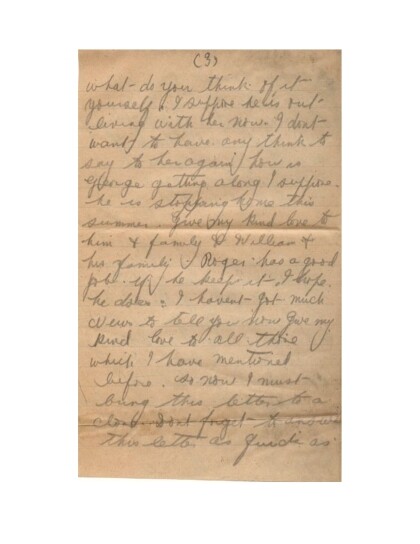 (3)
what do you think of it
yourself. I suppose he is out
living with her now I dont
want to have any think to
say to her again how is
George getting along I suppose
he is stopping home this
summer. Give my kind love to
him & family & William &
his family. Roger has a good
job if he keep it I hope
he does. I havent got much
news to tell you now Give my
kind love to all those
which I have mentioned
before. So now I must
bring this letter to a
close dont forget to answer
this letter as quick as